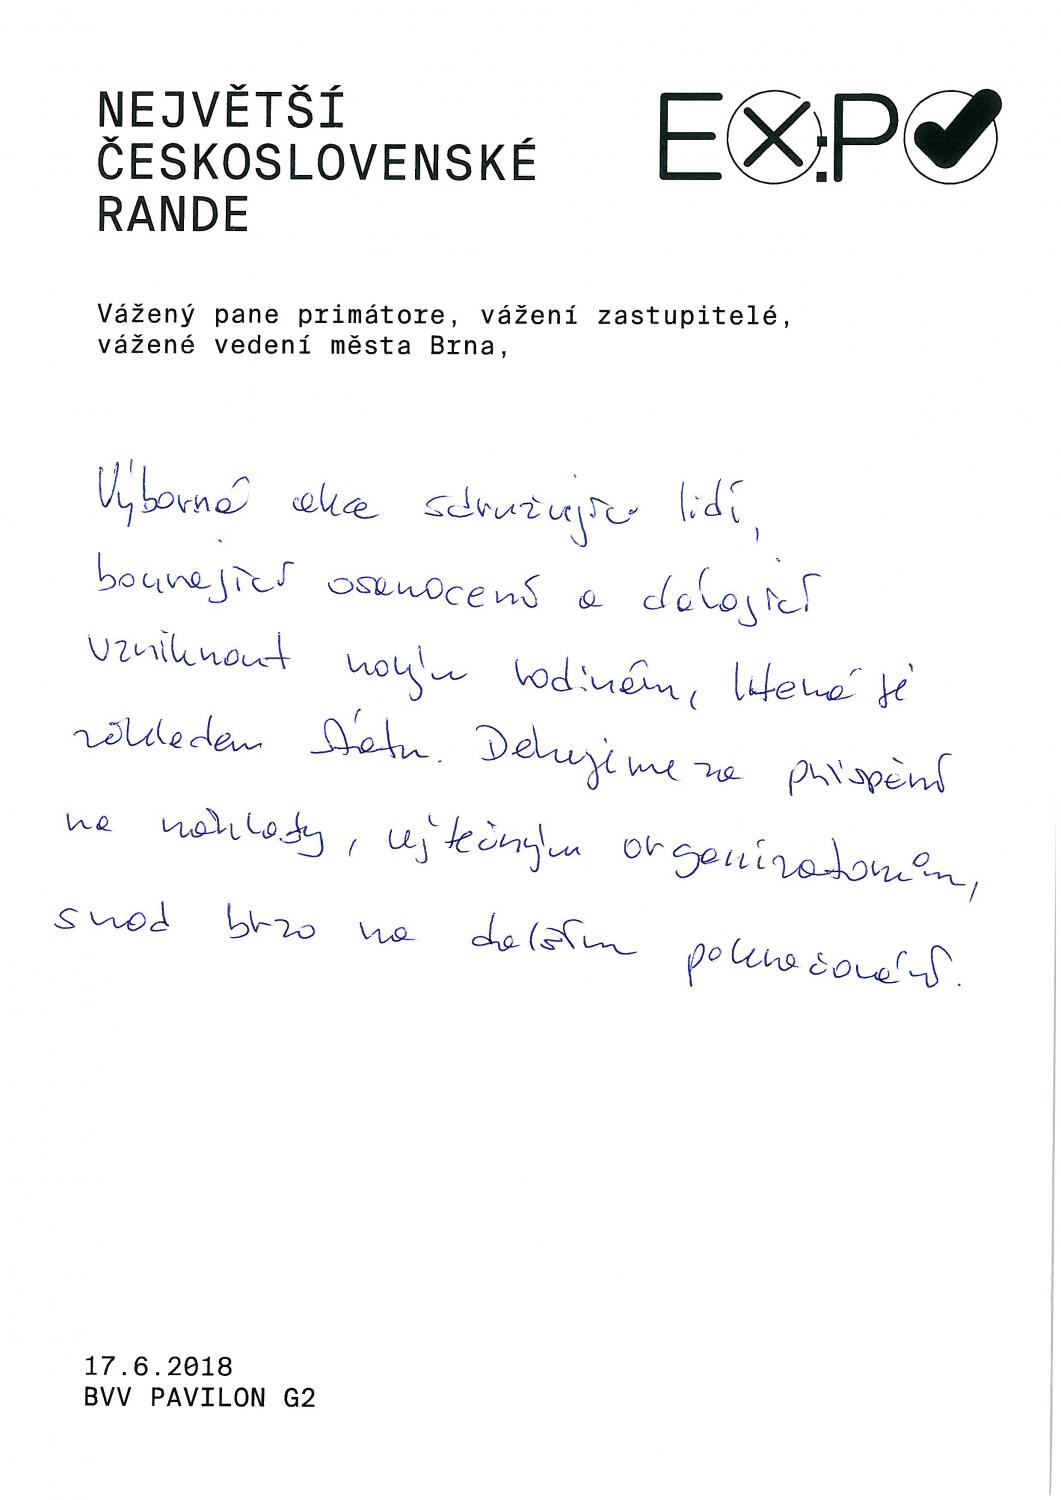 NEJVĚTŠÍ
ČESKOSLOVENSKÉ
RANDE
EX:PO
Vážený pane primátore, vážení zastupitelé,
vážené vedení města Brna,
Výborná akce sdružující lidí,
bourející osamocení a dávající
vzniknout novým rodinám, které je
základem státu. Děkujeme za přispění
na náklady, užitečným organizátorům,
snad brzo na dalším pokračování.
17.6.2018
BVV PAVILON G2